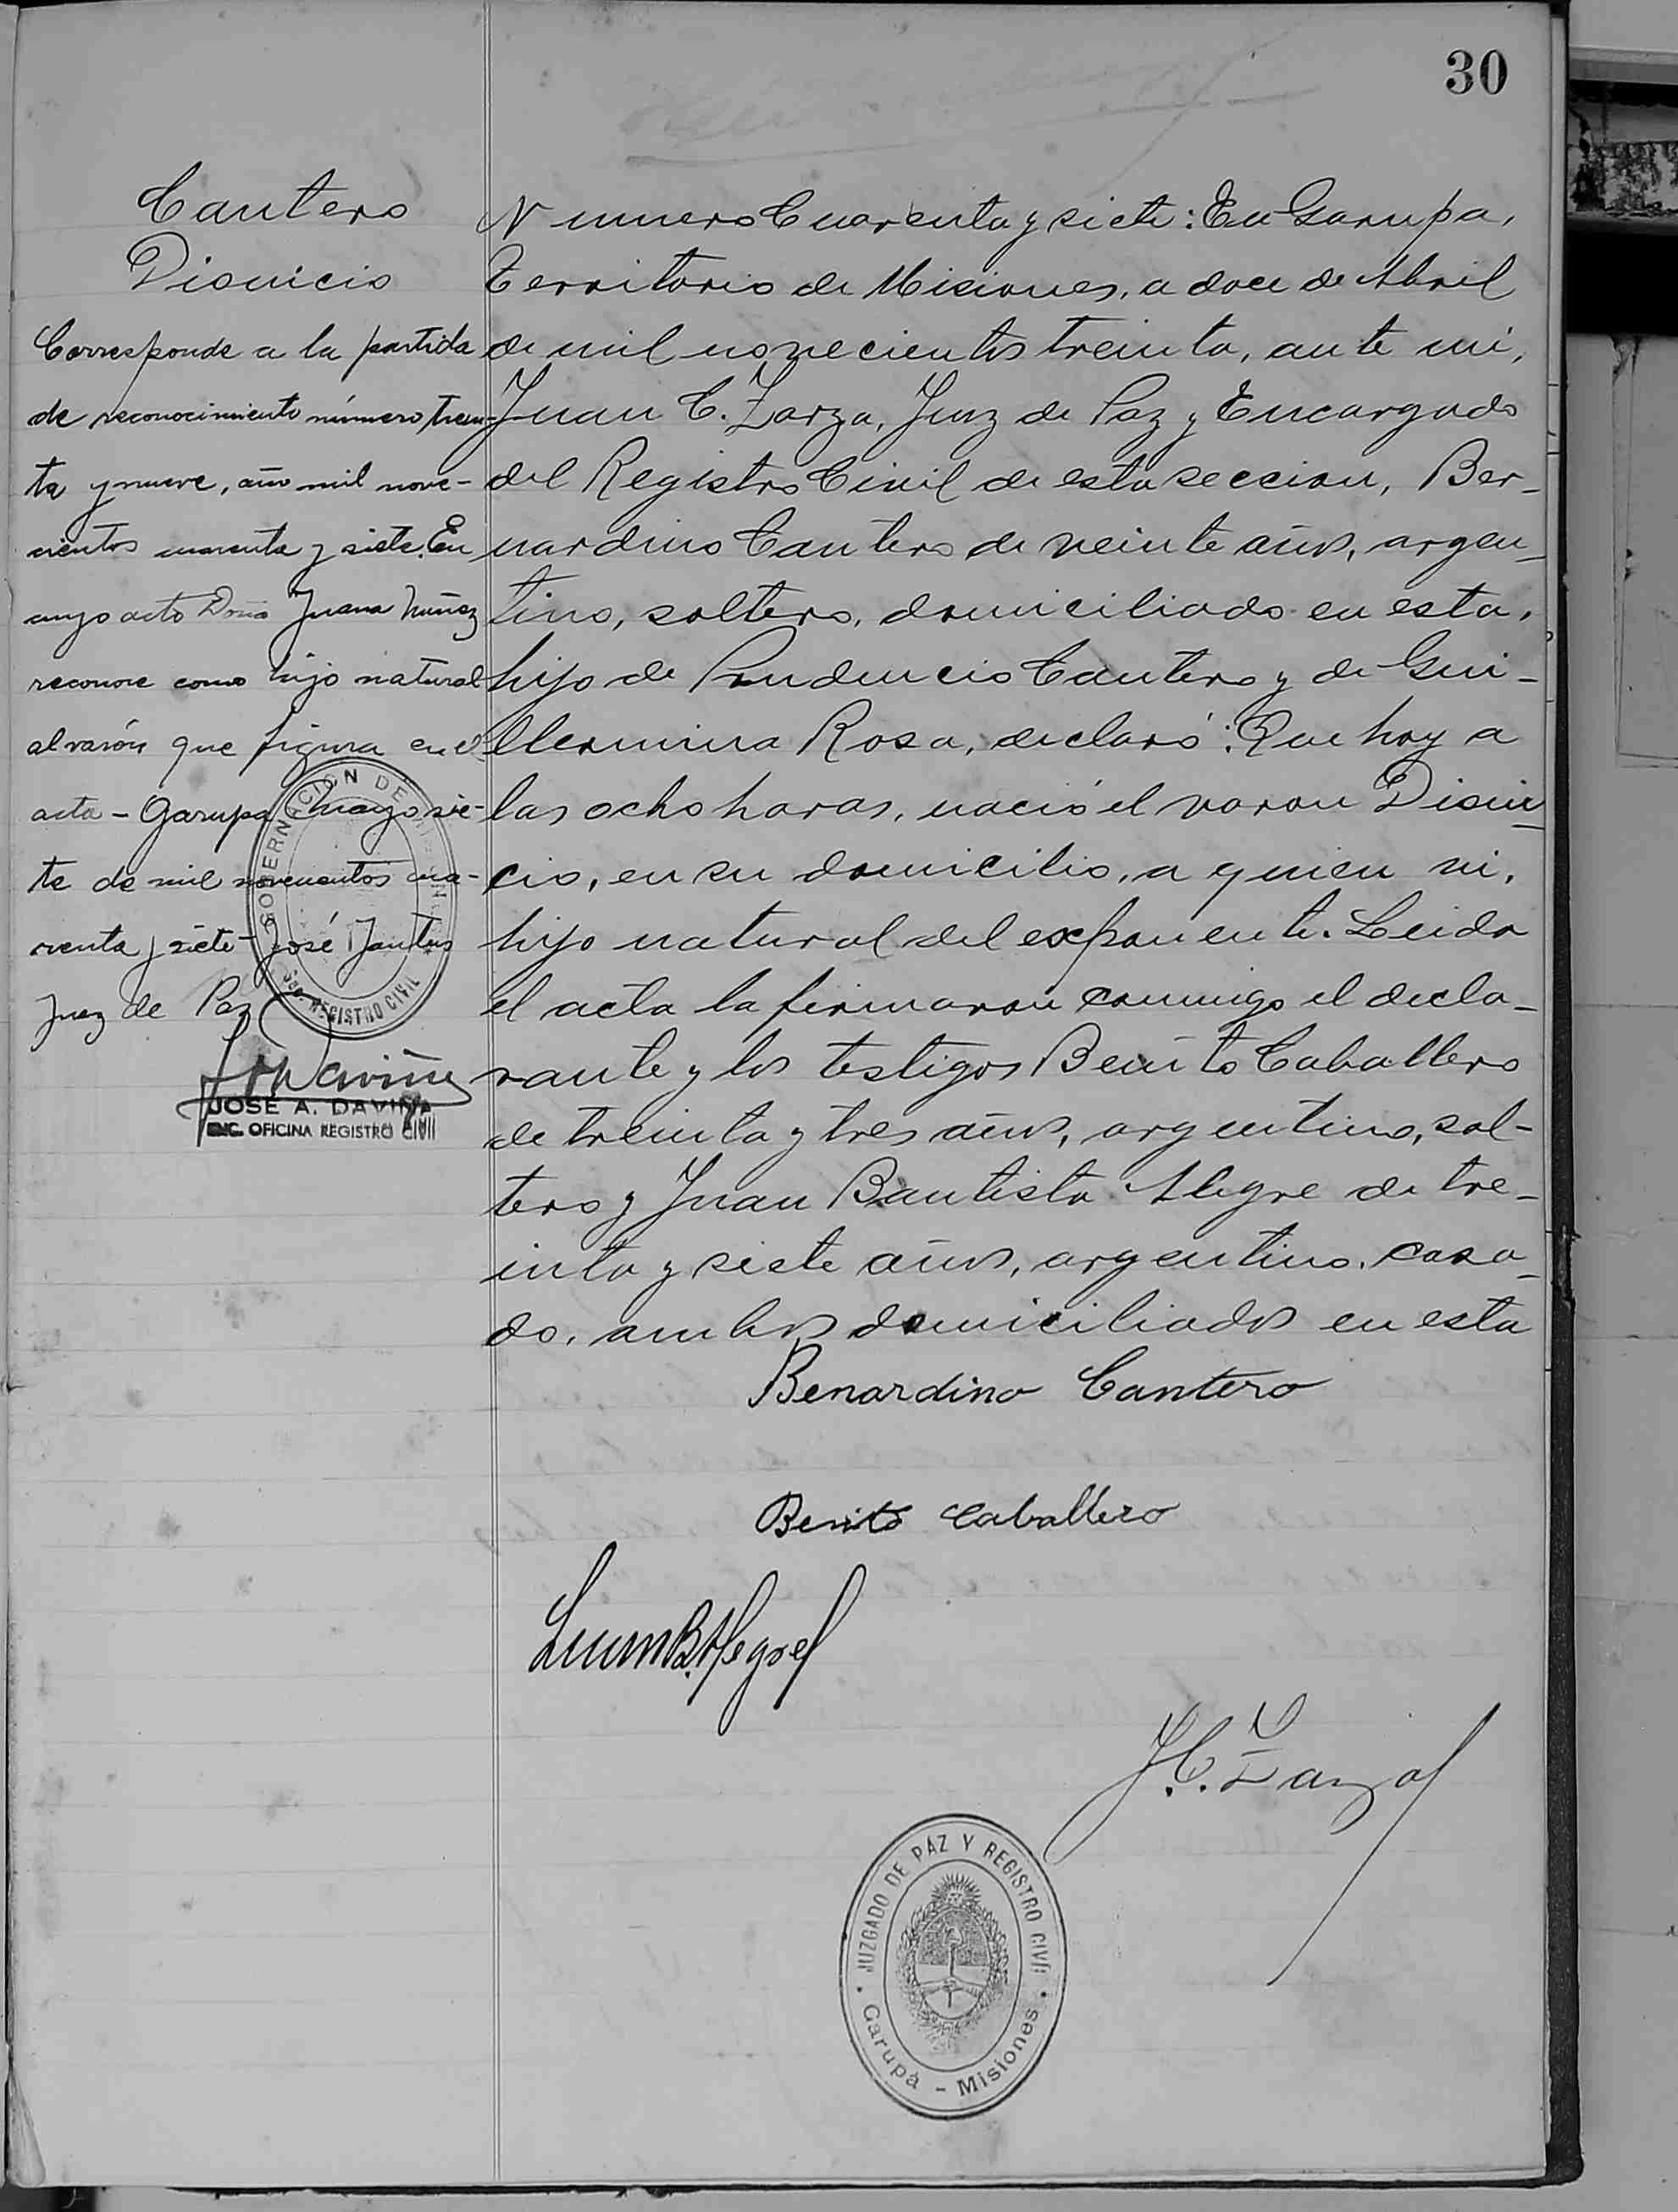 30
Cantero
Dionicio
Corresponde a la partida
de reconocimiento número trein-
ta y nueve, año mil nove-
cientos cuarenta y siete. En
cuyo acto Doña Juana Núñez
reconoce como hijo natural
al varón que figura en el
acta - Garupa Mayo sie-
te de mil novecientos cua-
renta y siete - José Santus
Juez de Paz
GOBERNACION DE MISIONES
REGISTRO CIVIL
JOSE A. DAVIÑA
ENC. OFICINA REGISTRO CIVIL
Numero Cuarenta y siete: En Garupa,
Territorio de Misiones, a doce de Abril
de mil novecientos treinta, ante mi,
Juan C. Zarza, Juez de Paz y Encargado
del Registro Civil de esta seccion, Ber-
nardino Cantero de veinte años, argen-
tino, soltero, domiciliado en esta,
hijo de Prudencio Cantero y de Gui-
llermina Rosa, declaró: Que hoy a
las ocho horas, nació el varon Dioni-
cio, en su domicilio, a quien vi,
hijo natural del exponente. Leida
el acta la firmaron conmigo el decla-
rante y los testigos Benito Caballero
de treinta y tres años, argentino, sol-
tero y Juan Bautista Alegre de tre-
inta y siete años, argentino, casa-
do, ambos domiciliados en esta
Benardino Cantero
Benito Caballero
Juan B. Alegre
J. C. Zarza
JUZGADO DE PAZ Y REGISTRO CIVIL
Garupá - Misiones